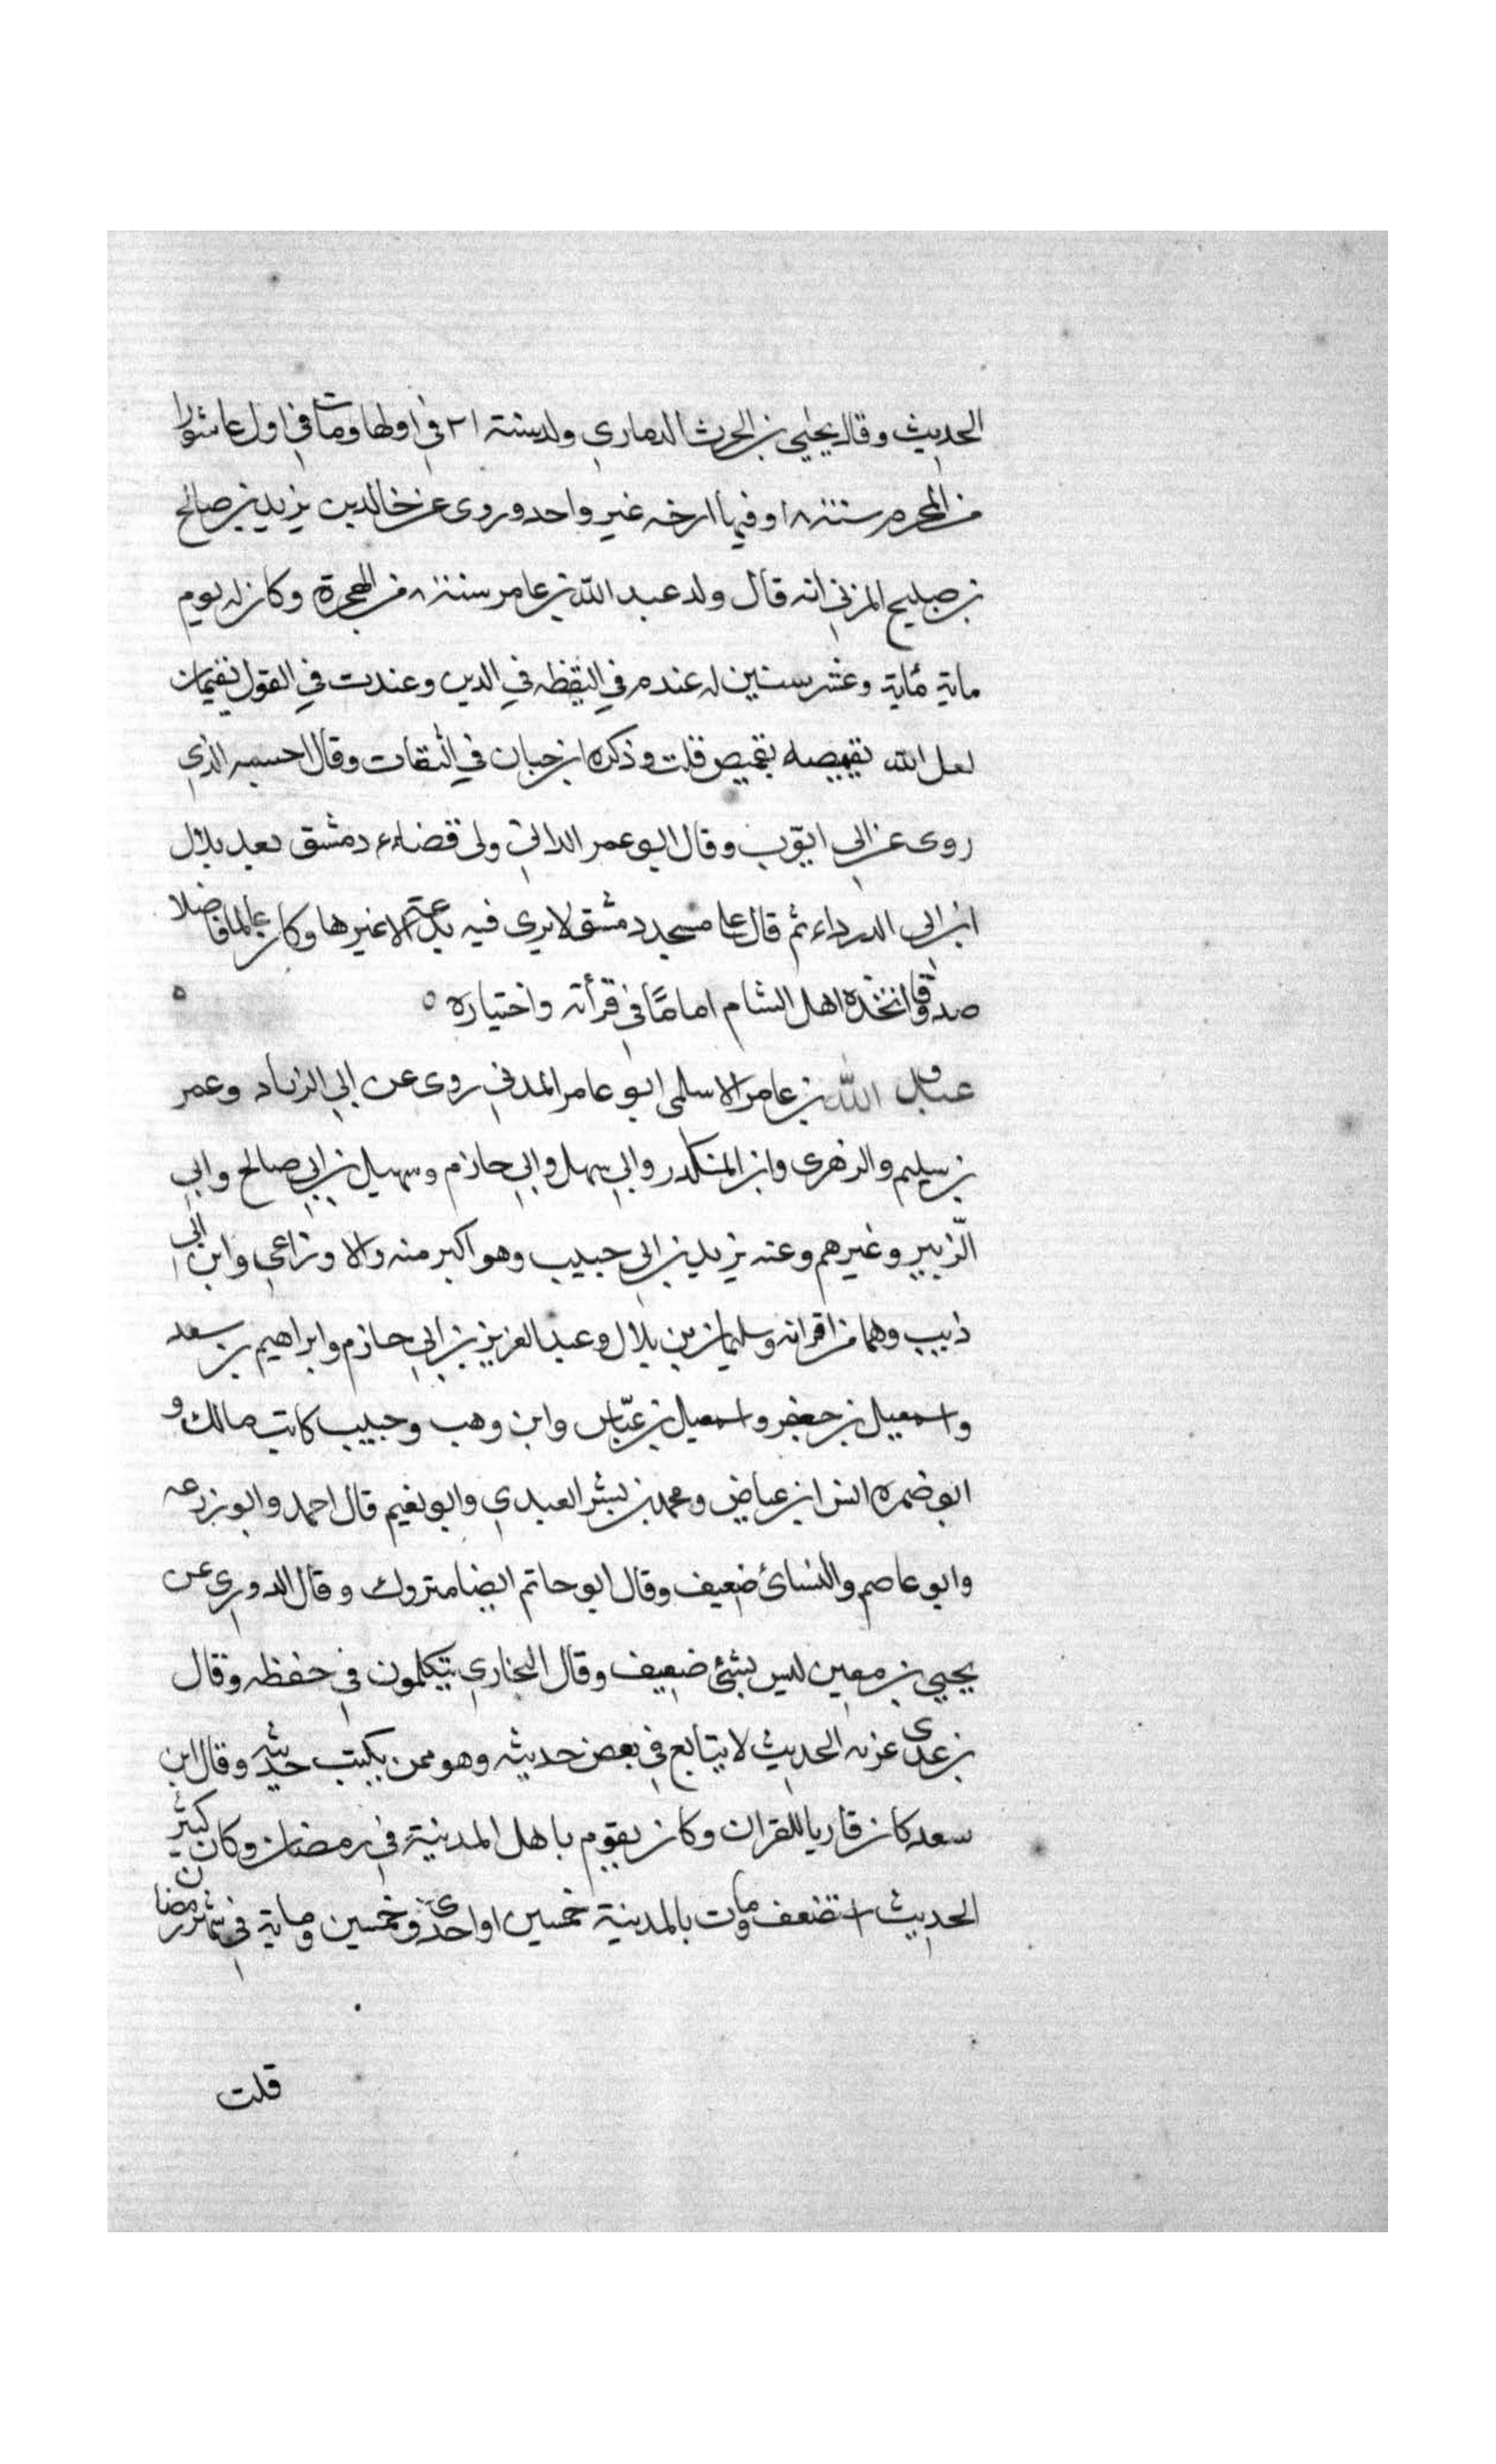 الحديث وقال يحيى بن الحرث الدماري ولد سنة ٢١ في اولها ومات في اول عاشورا
من المحرم سنة ١٠٨ وفيها ارخه غير واحد وروى عن خالد بن يزيد بن صالح
بن صليح المزني انه قال ولد عبد الله بن عامر سنة ٨ من الهجرة وكان له يوم
ماية ماية وعشر سنين له عندم في اليقظه في الدين وعندت في القول
لعل الله تقيصه بقميص قلت وذكره ابن حبان في الثقات وقال احسبه الذي
روى عن ابي ايوب وقال ابو عمر الداني ولى قضاء دمشق بعد بلال
ابن ابي الدرداء ثم قال عا مسجد دمشق لا يرى فيه بدعة الا غيرها وكان عالما فاضلا
صدوقا اتخذه اهل الشام اماما في قرأته واختياره
عبد الله بن عامر الاسلمى ابو عامر المدني روى عن ابي الزناد وعمر
بن سليم والزهرى وابن المنكدر وابي سهل وابي حازم وسهيل بن ابي صالح وابي
الزبير وغيرهم وعنه يزيد بن ابي حبيب وهو اكبر منه والاوزاعي وابن ابي
ذبيب وهما من اقرانه وسليمان بن بلال وعبد العزيز بن ابي حازم وابراهيم بن سعد
واسمعيل بن جعفر واسمعيل بن عباس وابن وهب وحبيب كاتب مالك و
ابو ضمره انس ابن عياض ومحمد بن بشر العبدي وابو نعيم قال احمد وابو زرعه
وابو عاصم والنسائ ضعيف وقال ابو حاتم ايضا متروك وقال الدوري عن
يحيي بن معين ليس بشئ ضعيف وقال البخاري يتكلمون في حفظه وقال
بن عدى عزيز الحديث لا يتابع في بعض حديثه وهو ممن يكتب حديثه وقال ابن
سعد كان قاريا للقران وكان يقوم باهل المدينة في رمضان وكان كثير
الحديث استضعف ومات بالمدينة خمسين او احدى وخمسين وماية في شهر رمضان
قلت